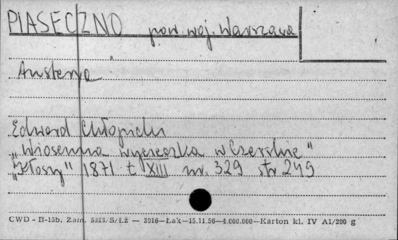 PIASECZNO pow. woj. Warszawa
Austeria
Edward Chłopicki
„Wiosenna wycieczka w Czerskie"
„Kłosy" 1871 t XIII nr. 329 str 249
CWD - D-15b. Zam. - 3916-Łak-15.11.56-4.000.000-Karton kl. IV A1/200 g